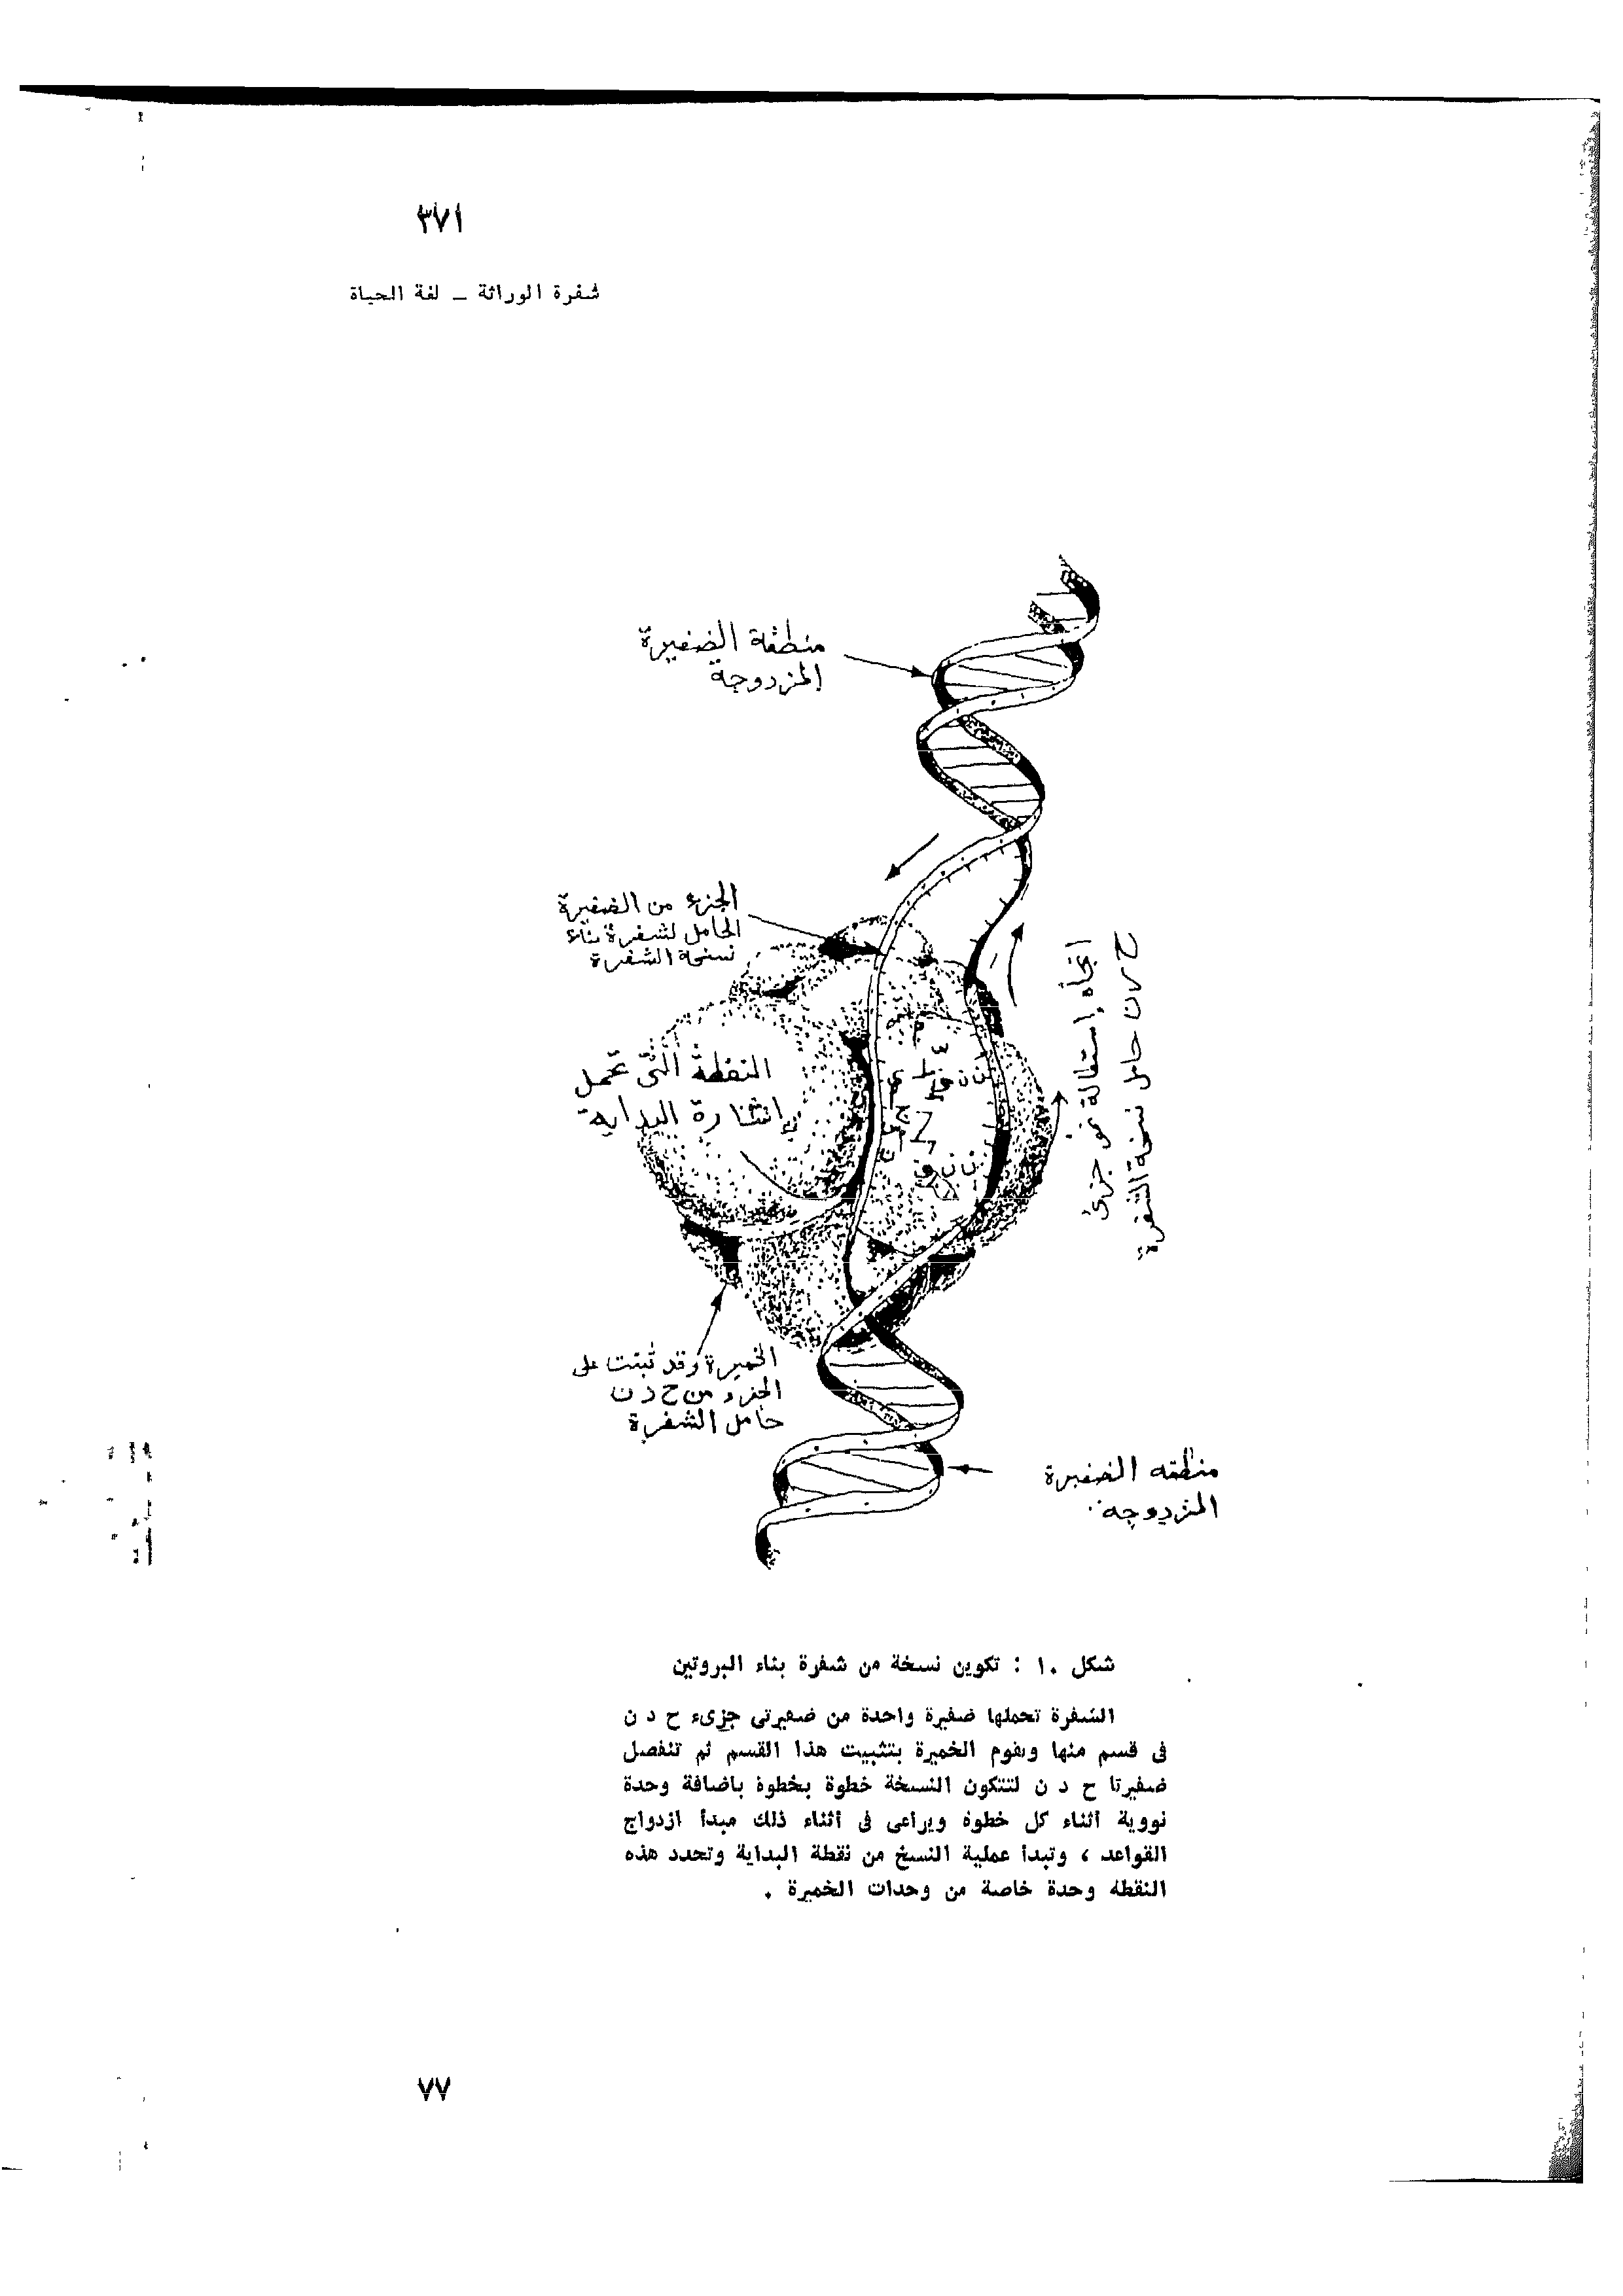 ٣٧١
شفرة الوراثة ــ لغة الحياة
منطقة الضفيرة
المزدوجة
الجزء من الضفيرة
الحامل لشفرة بناء
نسخة الشفرة
النقطة التى تحمل
إشارة البداية
اتجاه إستطالة نمو جزئ
ح ر ن حامل نسخة الشفرة
الخميرة وقد ثبتت على
الجزء من ح د ن
حامل الشفرة
منطقه الضفيرة
المزدوجه
شكل ١٠ : تكوين نسخة من شفرة بناء البروتين
الشفرة تحملها ضفيرة واحدة من ضفيرتى جزىء ح د ن
فى قسم منها وتقوم الخميرة بتثبيت هذا القسم ثم تنفصل
ضفيرتا ح د ن لتتكون النسخة خطوة بخطوة باضافة وحدة
نووية أثناء كل خطوة ويراعى فى أثناء ذلك مبدأ ازدواج
القواعد ، وتبدأ عملية النسخ من نقطة البداية وتحدد هذه
النقطة وحدة خاصة من وحدات الخميرة .
٧٧